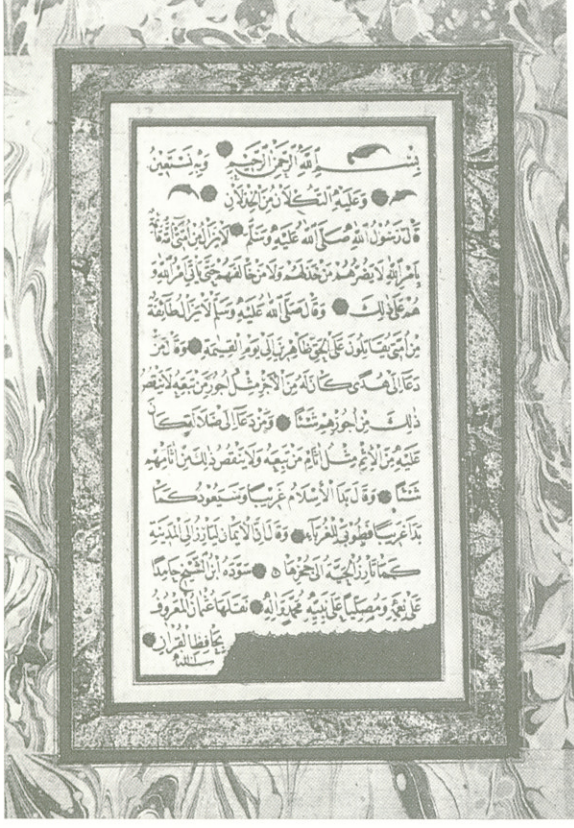 بِسْمِ اللَّهِ الرَّحْمٰنِ الرَّحِيمِ وَبِهِ نَسْتَعِينُ
وَعَلَيْهِ التُّكْلَانُ مِنَ الْخِذْلَانِ
قَالَ رَسُولُ اللَّهِ صَلَّى اللَّهُ عَلَيْهِ وَسَلَّمَ لَا يَزَالُ مِنْ أُمَّتِي أُمَّةٌ قَائِمَةٌ
بِأَمْرِ اللَّهِ لَا يَضُرُّهُمْ مَنْ خَذَلَهُمْ وَلَا مَنْ خَالَفَهُمْ حَتَّى يَأْتِيَ أَمْرُ اللَّهِ وَ
هُمْ عَلَى ذٰلِكَ وَقَالَ صَلَّى اللَّهُ عَلَيْهِ وَسَلَّمَ لَا يَزَالُ طَائِفَةٌ
مِنْ أُمَّتِي يُقَاتِلُونَ عَلَى الْحَقِّ ظَاهِرِينَ إِلَى يَوْمِ الْقِيٰمَةِ وَقَالَ مَنْ
دَعَا إِلَى هُدًى كَانَ لَهُ مِنَ الْأَجْرِ مِثْلُ أُجُورِ مَنْ تَبِعَهُ لَا يَنْقُصُ
ذٰلِكَ مِنْ أُجُورِهِمْ شَيْئًا وَمَنْ دَعَا إِلَى ضَلَالَةٍ كَانَ
عَلَيْهِ مِنَ الْإِثْمِ مِثْلُ آثَامِ مَنْ تَبِعَهُ وَلَا يَنْقُصُ ذٰلِكَ مِنْ آثَامِهِمْ
شَيْئًا وَقَالَ بَدَأَ الْإِسْلَامُ غَرِيبًا وَسَيَعُودُ كَمَا
بَدَأَ غَرِيبًا فَطُوبَى لِلْغُرَبَاءِ وَقَالَ إِنَّ الْإِيمَانَ لَيَأْرِزُ إِلَى الْمَدِينَةِ
كَمَا تَأْرِزُ الْحَيَّةُ إِلَى جُحْرِهَا سَوَّدَهُ ابْنُ الشَّيْخِ حَامِدًا
عَلَى نِعَمِهِ وَمُصَلِّيًا عَلَى نَبِيِّهِ مُحَمَّدٍ وَآلِهِ نَقَلَهَا عُثْمَانُ الْمَعْرُوفُ
بِحَافِظِ الْقُرْآنِ